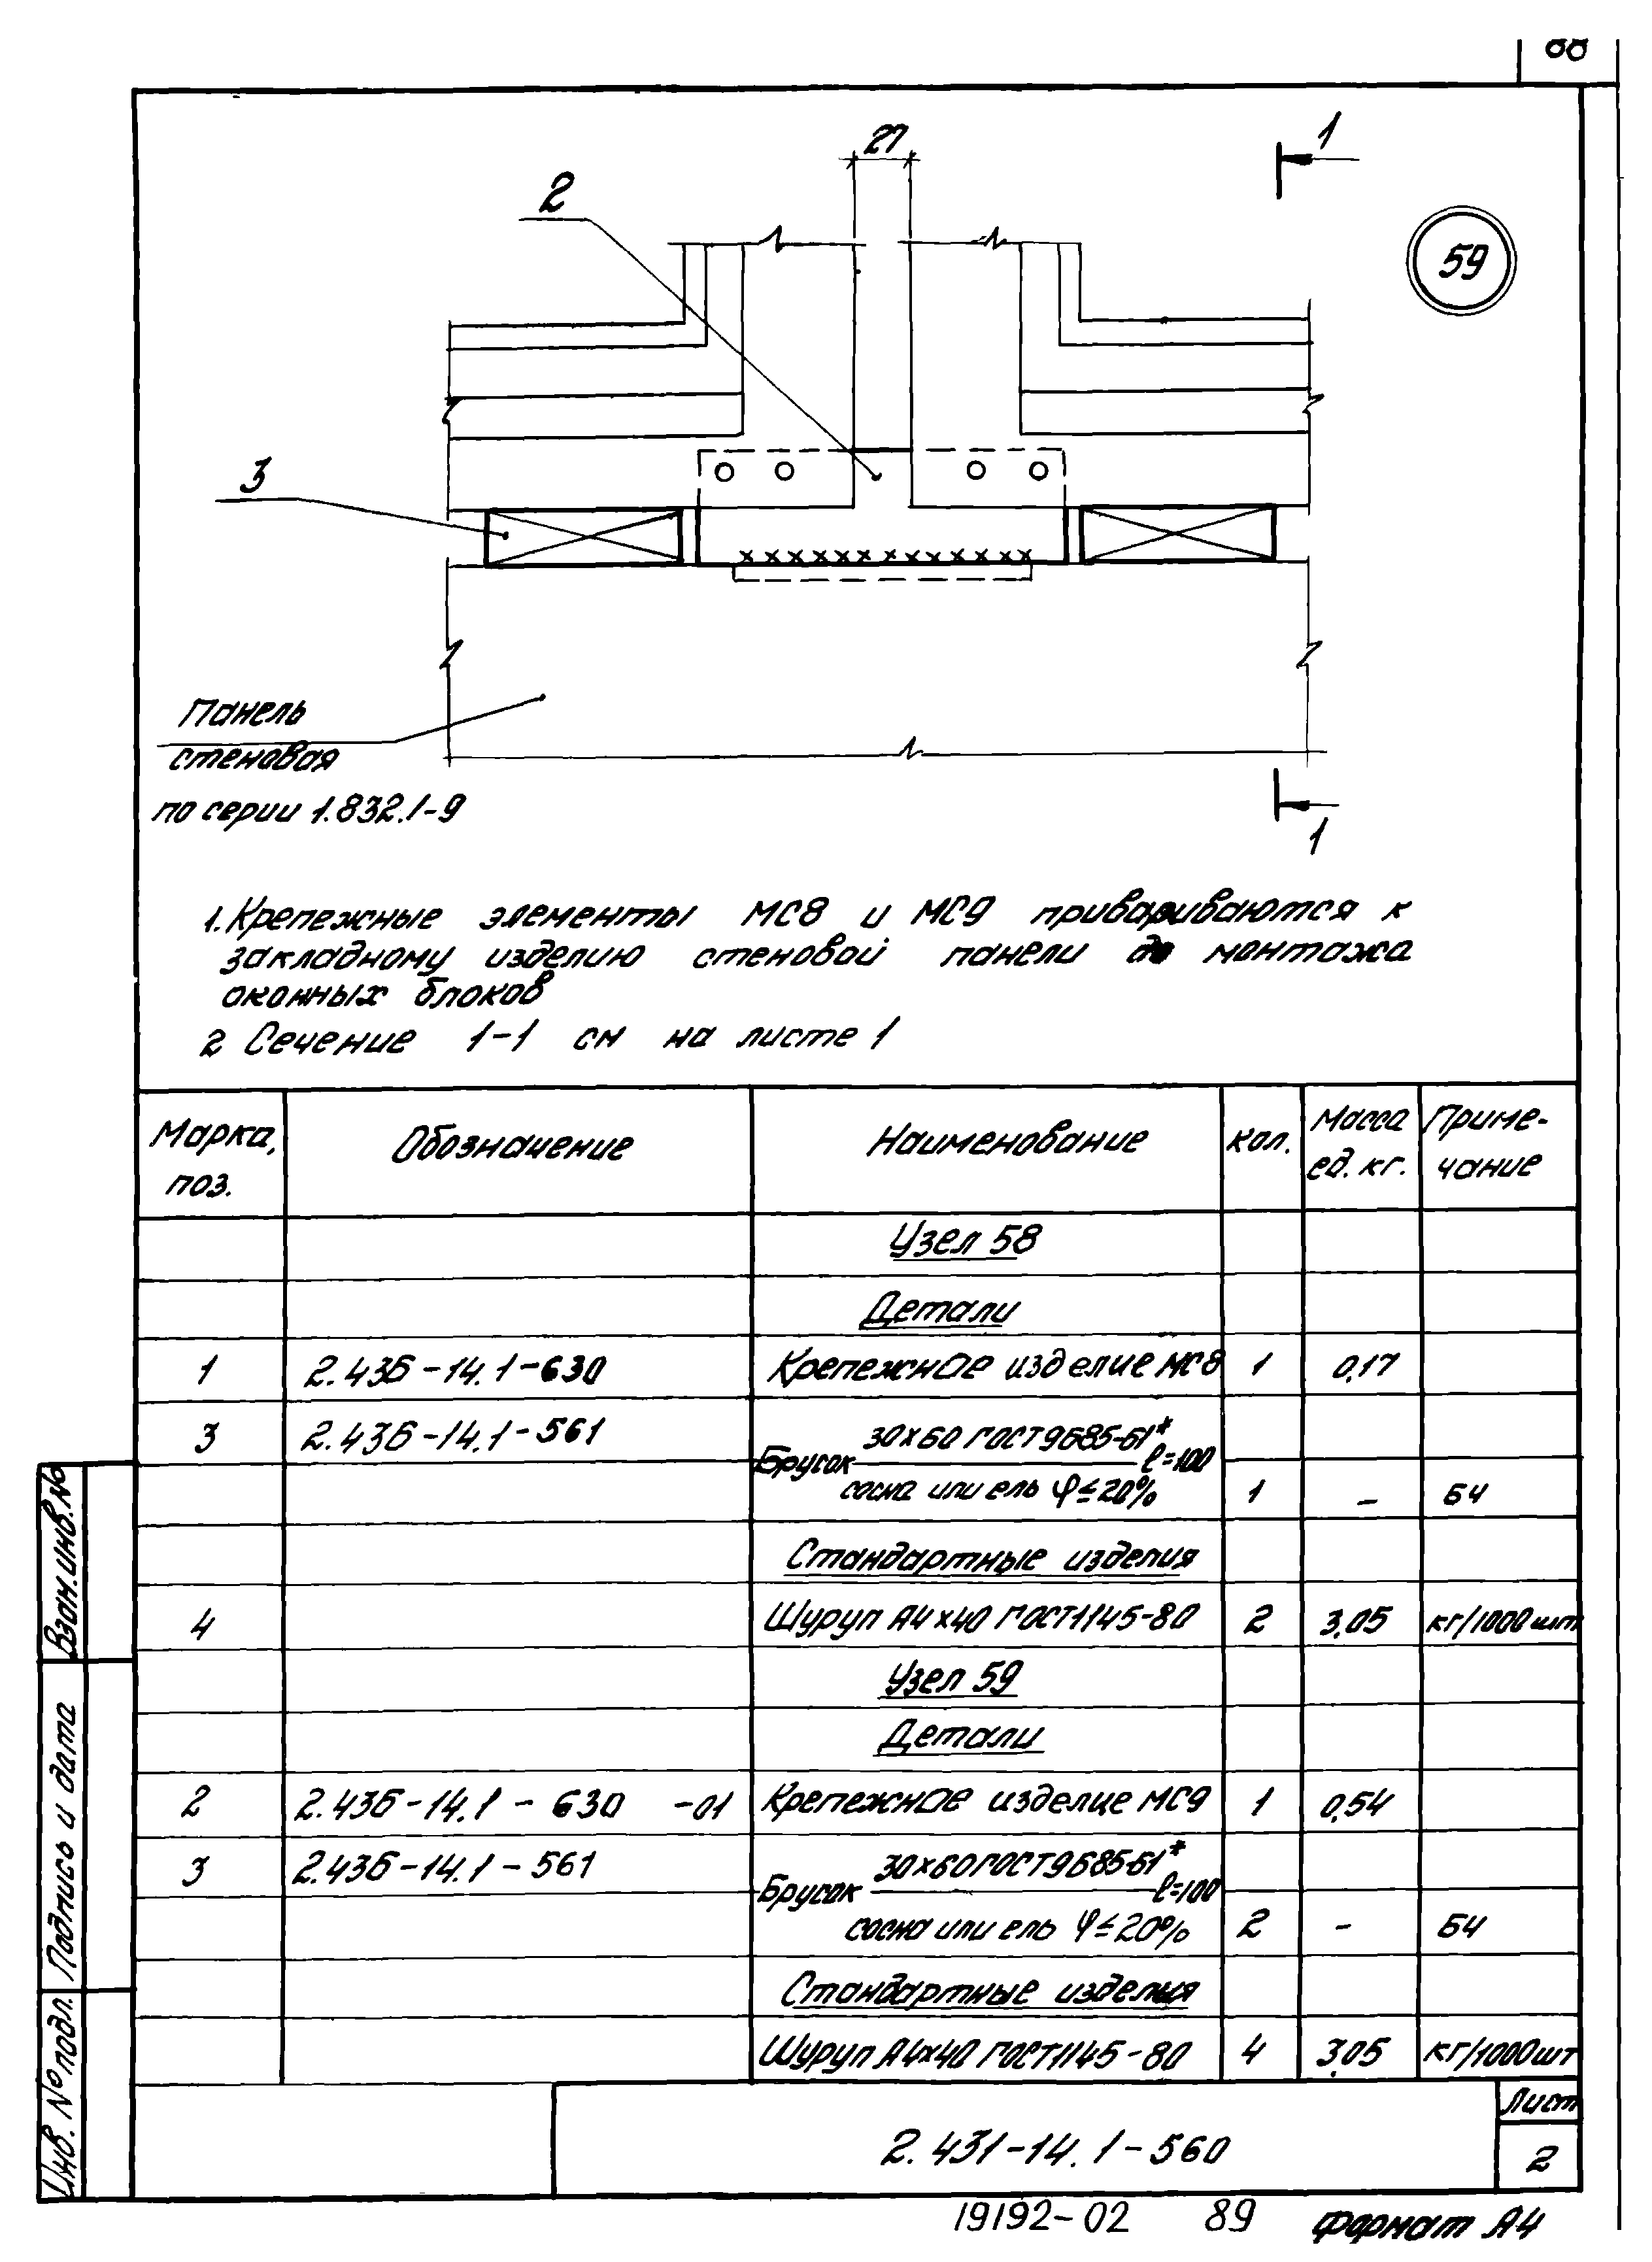 88
27
1
2
59
3
Панель
стеновая
по серии 1.832.1-9
1
1. Крепежные элементы МС8 и МС9 привариваются к
закладному изделию стеновой панели до монтажа
оконных блоков
2 Сечение 1-1 см на листе 1
Марка, поз. Обозначение Наименование Кол. Масса ед. кг. Примечание
Узел 58
Детали
1 2.436-14.1-630 Крепежное изделие МС8 1 0,17
3 2.436-14.1-561 30х60 ГОСТ 9685-61*
Брусок ℓ=100
сосна или ель φ≤20% 1 – БЧ
Стандартные изделия
4 Шуруп А4х40 ГОСТ 1145-80 2 3,05 кг/1000шт
Узел 59
Детали
2 2.436-14.1-630 -01 Крепежное изделие МС9 1 0,54
3 2.436-14.1-561 30х60 ГОСТ 9685-61*
Брусок ℓ=100
сосна или ель φ≤20% 2 – БЧ
Стандартные изделия
Шуруп А4х40 ГОСТ 1145-80 4 3,05 кг/1000шт
Взам.инв.№
Подпись и дата
Инв. № подл.
2.431-14.1-560
Лист
2
19192-02 89 Формат А4